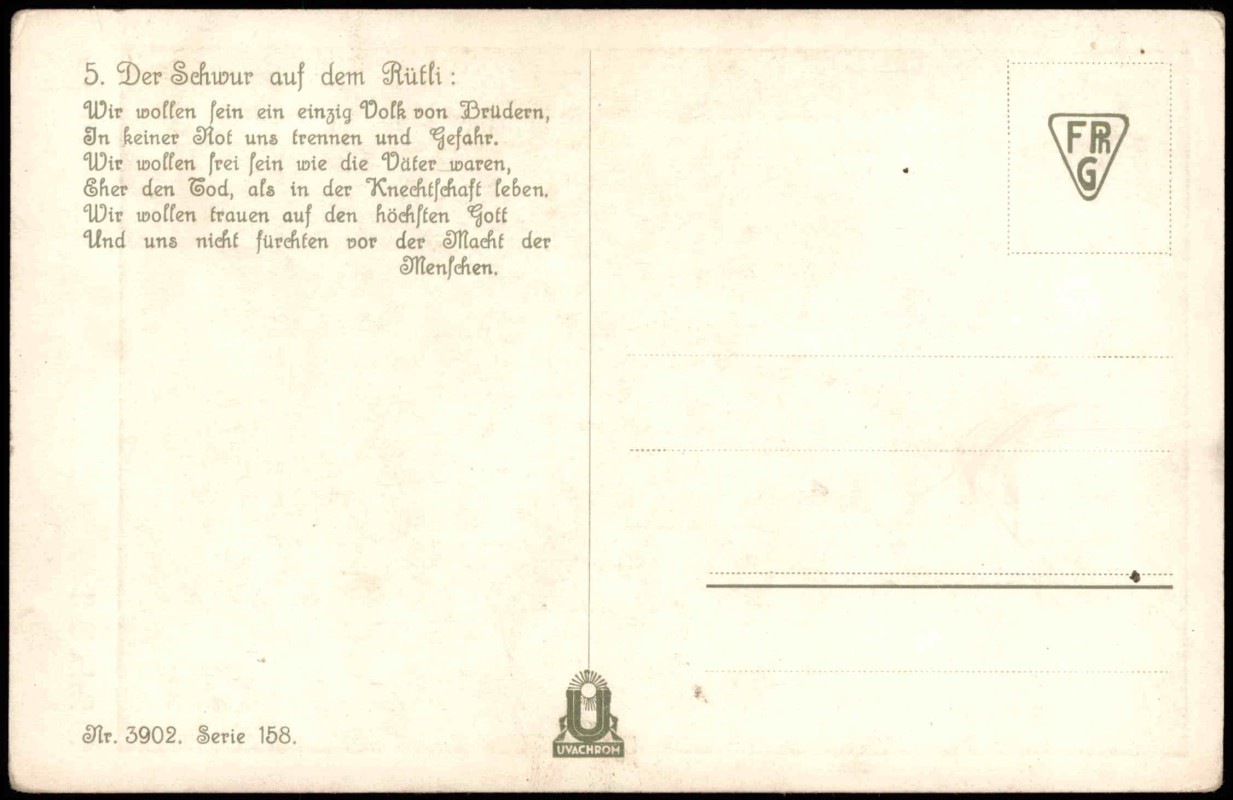 5. Der Schwur auf dem Rütli:
Wir wollen sein ein einzig Volk von Brüdern,
In keiner Not uns trennen und Gefahr.
Wir wollen frei sein wie die Väter waren,
Eher den Tod, als in der Knechtschaft leben.
Wir wollen trauen auf den höchsten Gott
Und uns nicht fürchten vor der Macht der
Menschen.
FPhG
Nr. 3902. Serie 158.
U
UVACHROM